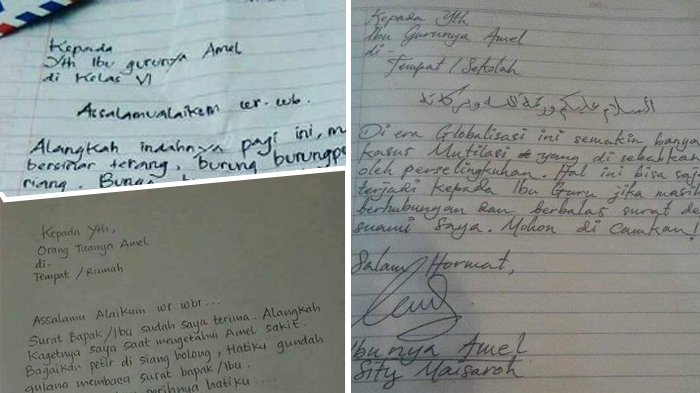 Kepada
Yth Ibu gurunya Amel
di Kelas VI
Assalamualaikem wr. wb.
Alangkah indahnya pagi ini,
bersinar terang, burung burung
riang.
Kepada Yth,
Orang Tuanya Amel
di-
Tempat / Rumah
Assalamu Alaikum wr wbr...
Surat Bapak/Ibu sudah saya terima. Alangkah
Kagetnya saya saat mengetahui Amel sakit.
Bagaikan petir di siang bolong, Hatiku gundah
gulana membaca surat bapak/Ibu.
perihnya hatiku....
Kepada Yth
Ibu Gurunya Amel
di-
Tempat / Sekolah
السلام عليكم ورحمة الله وبركاته
Di era Globalisasi ini semakin banya
kasus Mutilasi yang di sebabkan
oleh perselingkuhan. Hal ini bisa saja
terjadi kepada Ibu Guru jika masih
berhubungan dan berbalas surat de
suami Saya. Mohon di camkan!
Salam Hormat,
Ibunya Amel
Sity Maisaroh